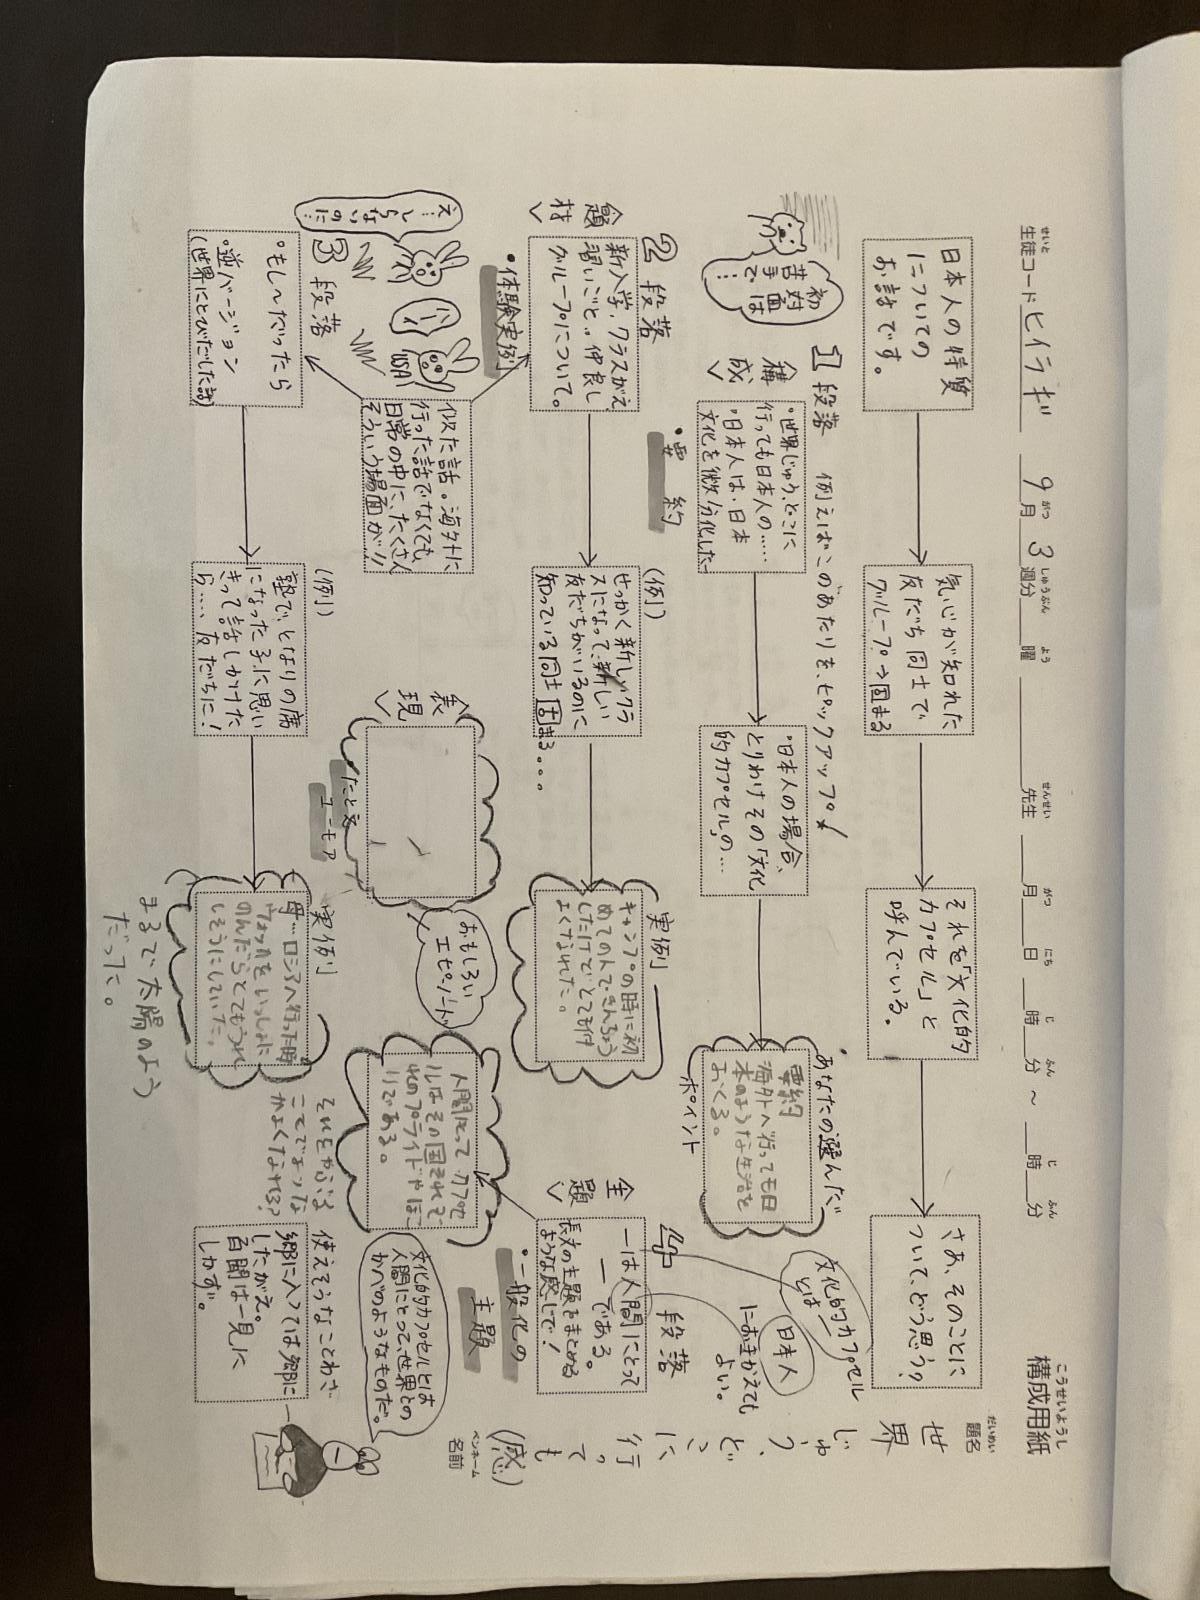 構成用紙
こうせいようし
生徒コード ヒイラギ 9月 3週分 曜 先生 月 日 時 分 ～ 時 分
せいと がつ しゅうぶん よう せんせい がつ にち じ ふん じ ふん
題名
だいめい
世界
じゅう、どこに
行っても
(感)
ペンネーム
名前
日本人の特質
についての
お話です。
気心が知れた
友だち同士で
グループ→固まる
それを「文化的
カプセル」と
呼んでいる。
さあ、そのことに
ついて、どう思う?
初対面は
苦手で…
1段落 例えばこのあたりを、ピックアップ!
<構成>
・世界じゅう、どこに
行っても日本人の……
・日本人は、日本
文化を微分化した
・日本人の場合、
とりわけその「文化
的カプセル」の…
・あなたの選んだ
要約
海外へ行っても日
本のような生活を
おくる。
ポイント
・要約
文化的カプセル
とは
日本人
におきかえても
よい。
2段落
<題材>
新入学、クラスがえ
習いごと。仲良し
グループについて。
(例)
せっかく新しいクラ
スになって、新しい
友だちがいるのに
知っている同士固まる。。。
実例
キャンプの時に初
めての人できんちょう
したけど、とても仲
よくなれた。
4段落
<主題>
―は人間にとって
―である。
長文の主題をまとめる
ような感じで!
・一般化の
主題
・体験実例
似た話。海外に
行った話でなくても、
日常の中に、たくさん
そういう場面が!!
<表現>
たとえ
ユーモア
おもしろい
エピソード
人間にとってカプセ
ルはその国それぞ
れのプライドやほこ
りである。
文化的カプセルとは
人間にとって、世界との
かべのようなものだ。
え…しらないのに…
USA!
3段落
・もし～だったら
・逆バージョン
(世界にとびだした話)
(例)
塾で、となりの席
になった子に思い
きって話しかけた
ら……友だちに!
実例
母…ロシアへ行った時
ウォッカをいっしょに
のんだらとてもうれ
しそうにしていた。
まるで太陽のよう
だった。
使えそうなことわざ
郷に入っては郷に
したがえ。
百聞は一見に
しかず。